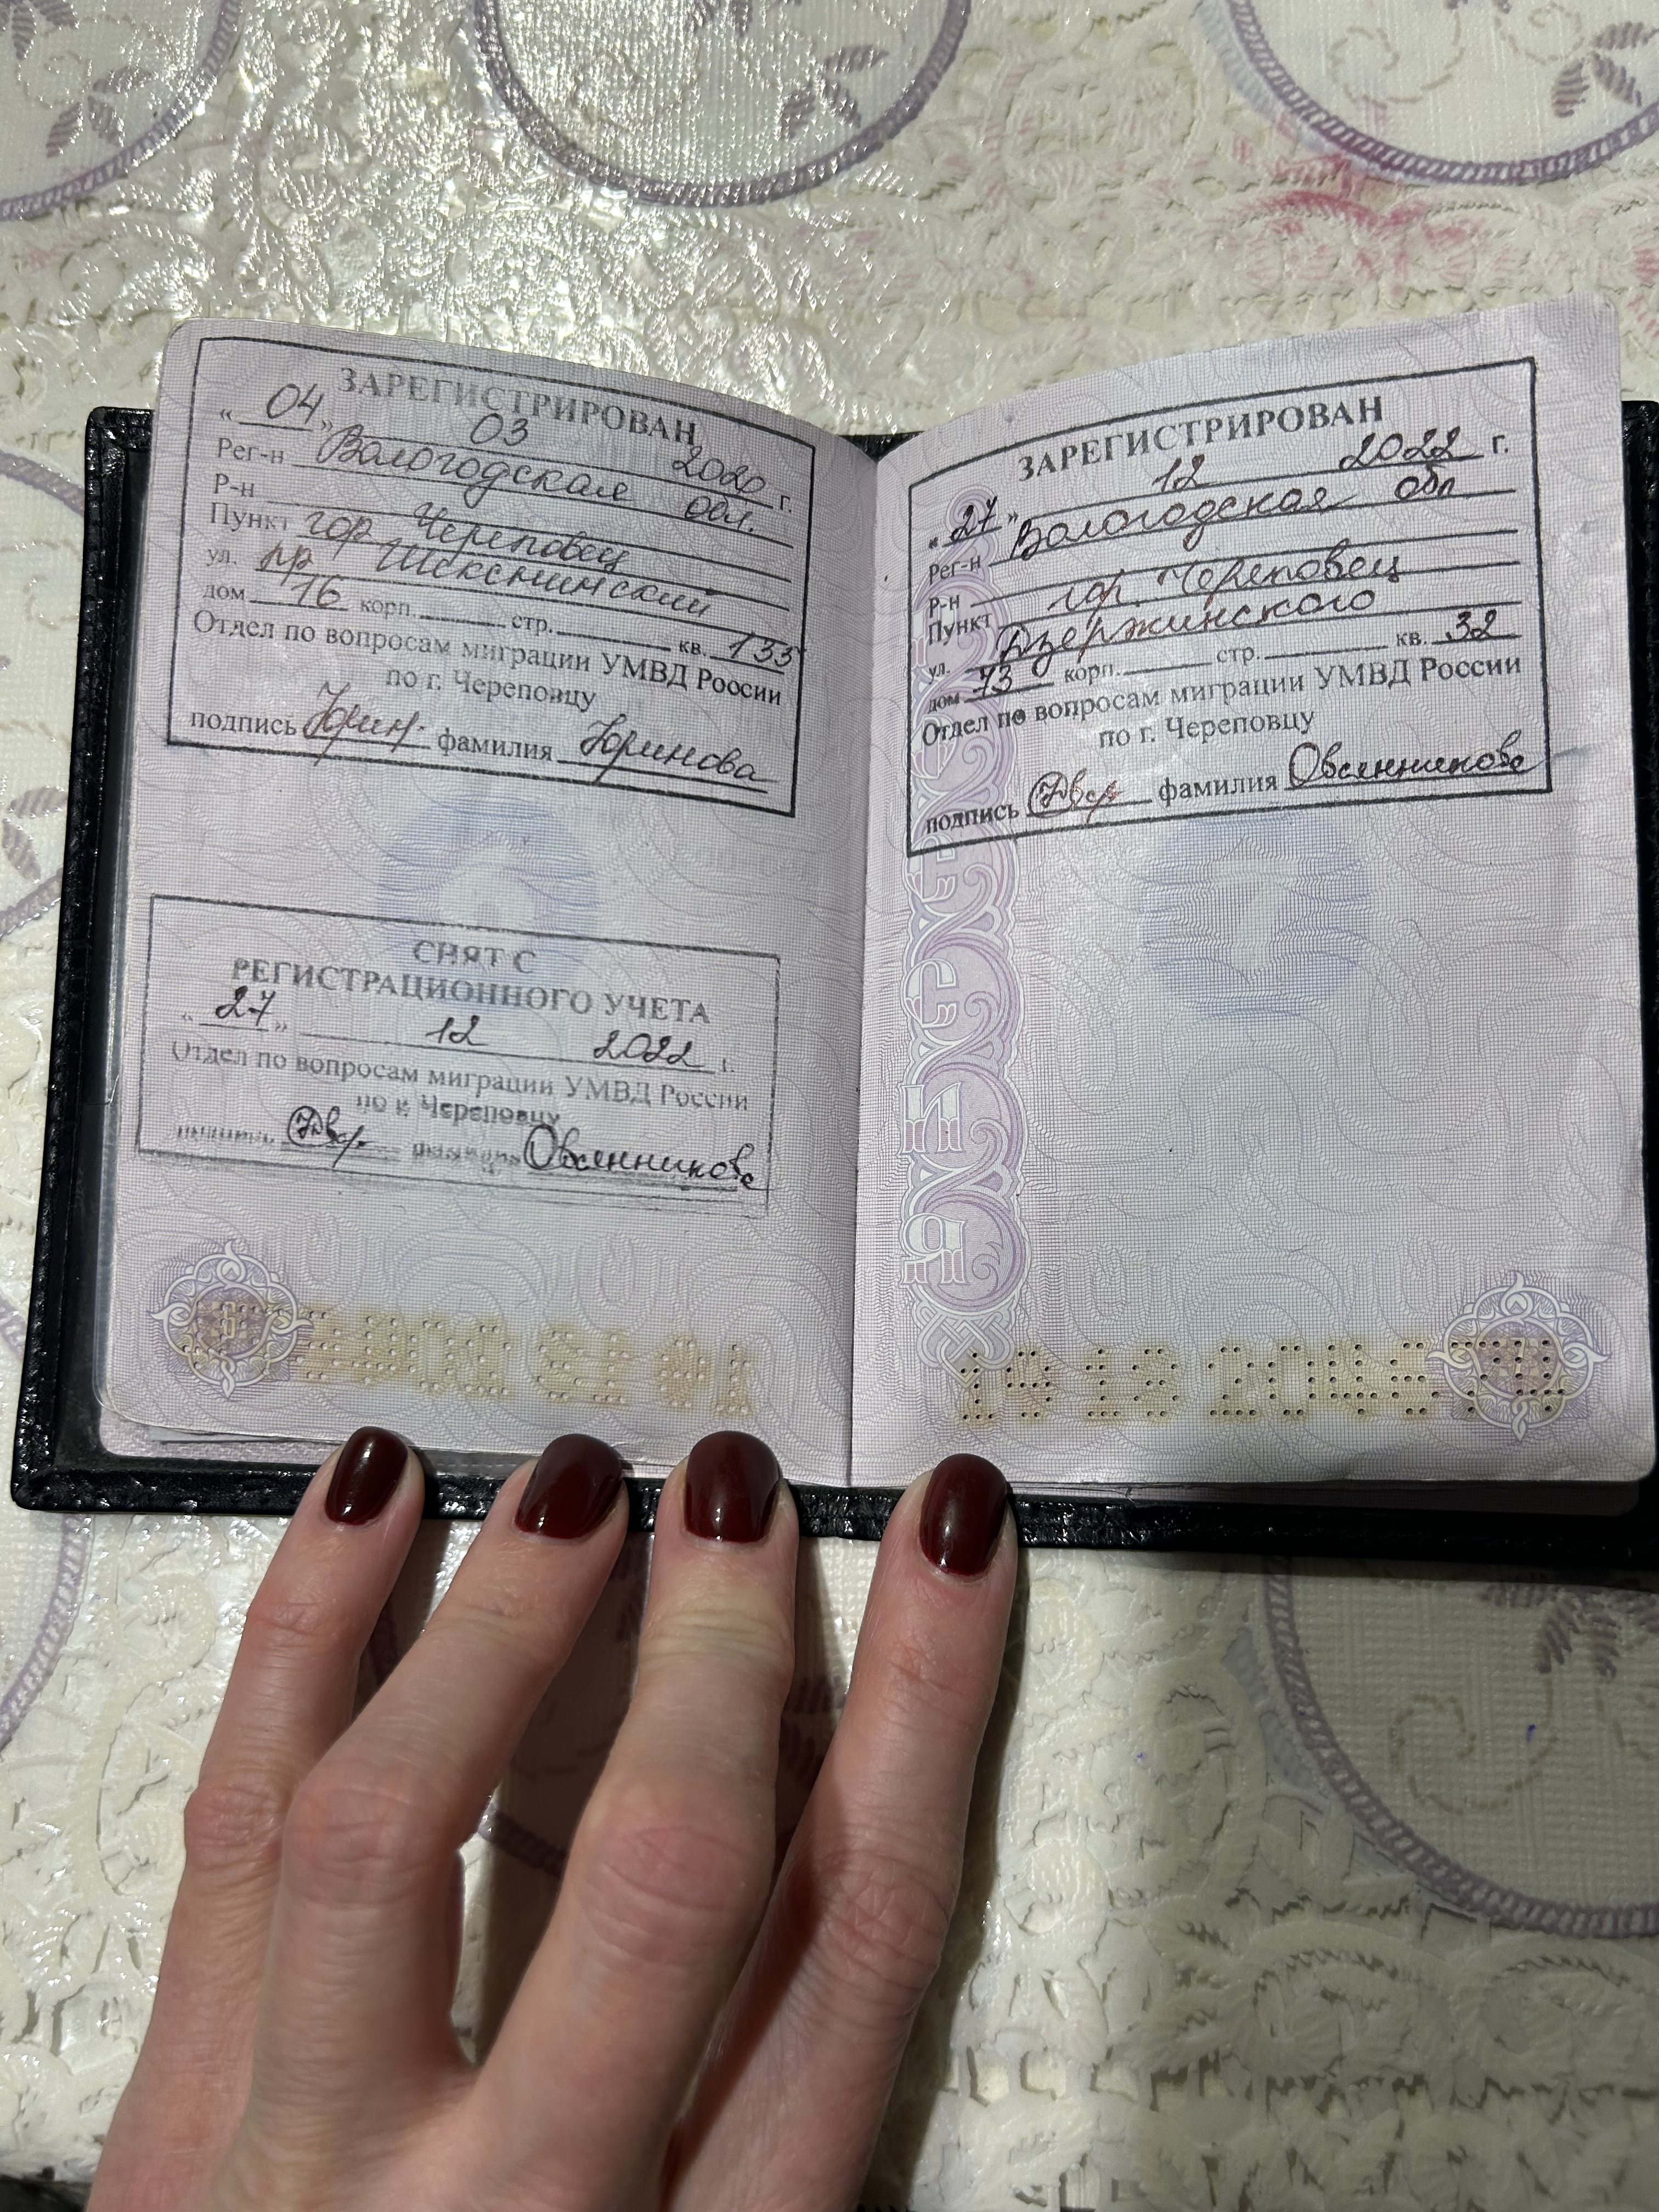 ЗАРЕГИСТРИРОВАН
« 04 » 03 2020 г.
Рег-н Вологодская обл.
Р-н
Пункт гор Череповец
ул. пр Шекснинский
дом 16 корп. стр. кв. 133
Отдел по вопросам миграции УМВД России
по г. Череповцу
подпись фамилия Юринова
СНЯТ С
РЕГИСТРАЦИОННОГО УЧЕТА
« 27 » 12 2022 г.
Отдел по вопросам миграции УМВД России
по г. Череповцу
Овсянникова
ЗАРЕГИСТРИРОВАН
« 27 » 12 2022 г.
Рег-н Вологодская обл
Р-н
Пункт гор. Череповец
ул. Дзержинского
дом 73 корп. стр. кв. 32
Отдел по вопросам миграции УМВД России
по г. Череповцу
подпись фамилия Овсянникова
7
19 13